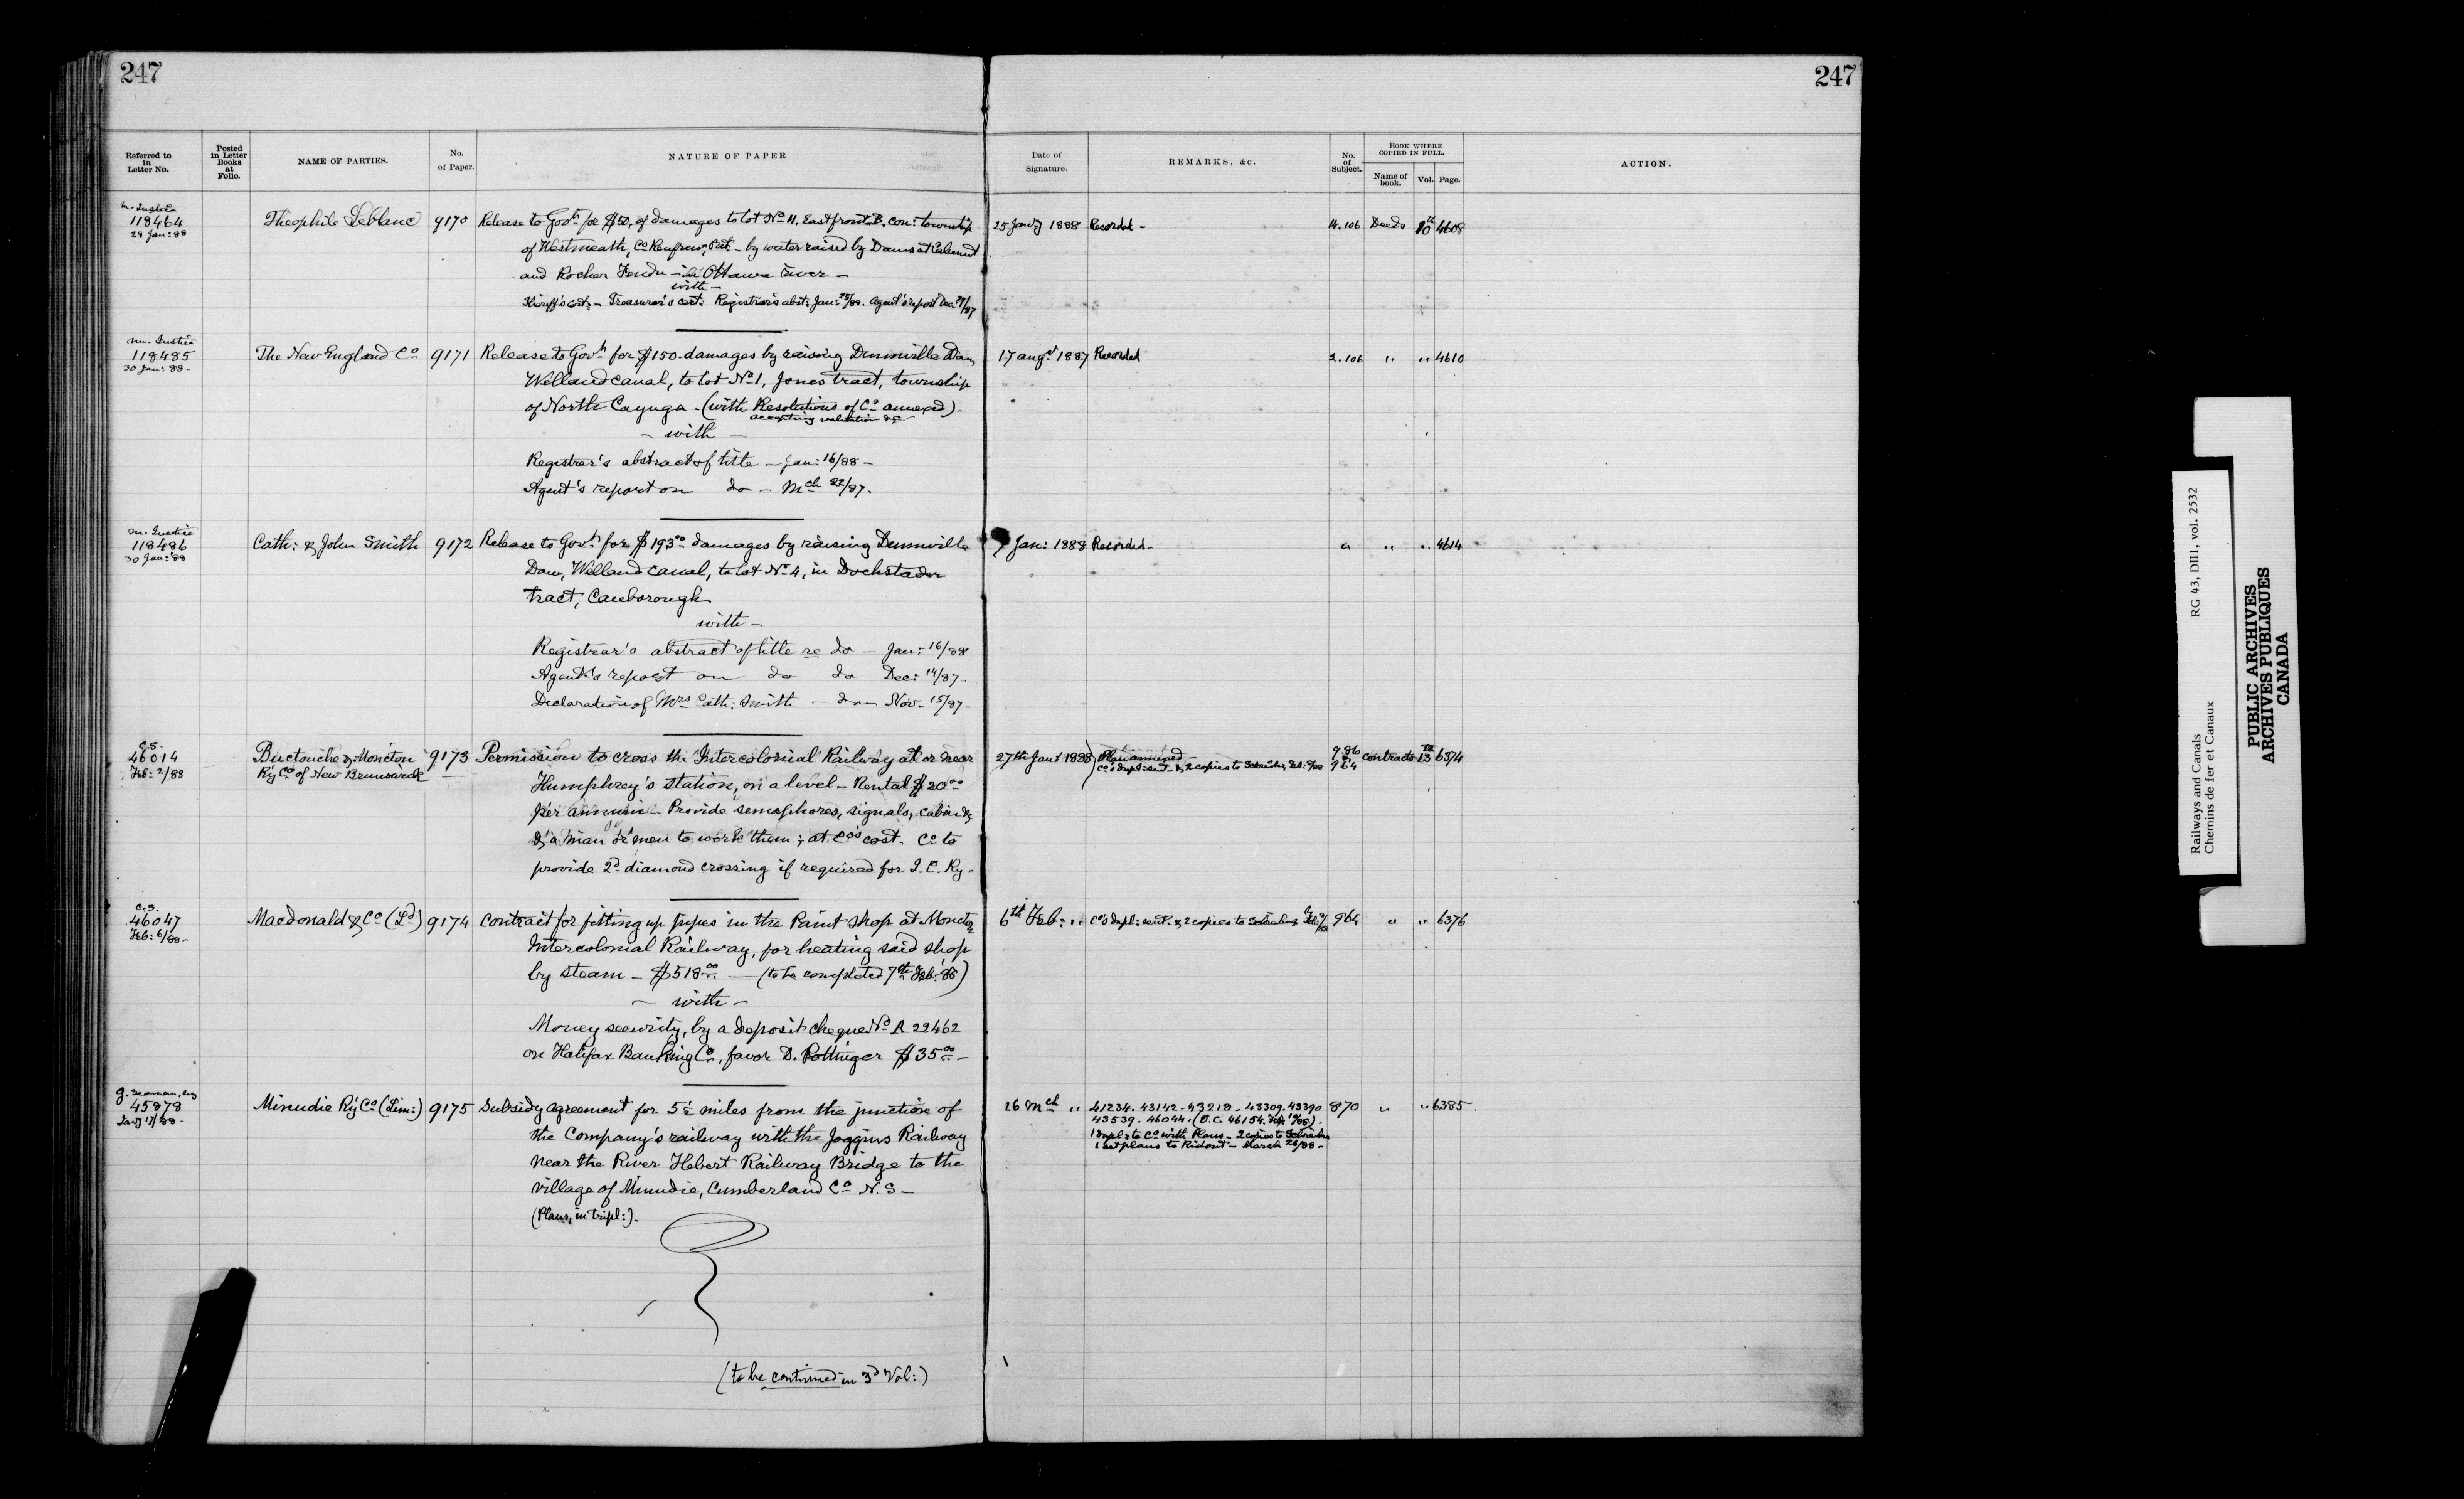 247
247
Referred to in Letter No.
Posted in Letter Books at Folio.
NAME OF PARTIES.
No. of Paper.
NATURE OF PAPER
Date of Signature.
REMARKS, &c.
No. of Subject.
BOOK WHERE COPIED IN FULL.
Name of book.
Vol.
Page.
ACTION.
M. Justice
118464
28 Jan: 88
Theophile Leblanc
9170
Release to Govt. for $50, of damages to lot No. 11. East front B. con: township
of Westmeath, Co. Renfrew, - by water raised by Dams at Calumet
and Rocher Fendu - in Ottawa river -
with -
Sheriff's cert: - Treasurer's cert: Registrar's abst: Jan: 25/88. Agent's report Dec: 29/87
25 Jan'y 1888
Recorded -
14.106
Deeds
10th
4608
M. Justice
118485
30 Jan: 88 -
The New England Co.
9171
Release to Govt. for $150. damages by raising Dunnville Dam,
Welland canal, to lot No. 1, Jones tract, township
of North Cayuga - (with Resolutions of Co. annexed) -
accepting valuation &c -
- with -
Registrar's abstract of title - Jan: 16/88 -
Agent's report on do - Mch 22/87.
17 augt 1887
Recorded
2.106
"
"
4610
M. Justice
118486
30 Jan: 88
Cath: & John Smith
9172
Release to Govt. for $193.00 damages by raising Dunnville
Dam, Welland canal, to lot No. 4, in Dochstader
tract, Canborough
with -
Registrar's abstract of title re do - Jan: 16/88
Agent's report on do do Dec: 14/87 -
Declaration of Mrs. Cath: Smith - do - Nov - 15/87 -
7 Jan: 1888
Recorded -
"
"
"
4614
C.S.
46014
Feb: 2/88
Buctouche & Moncton
Ry Co. of New Brunswick
9173
Permission to cross the Intercolonial Railway at or near
Humphrey's station, on a level - Rental $20.00
per annum - Provide semaphores, signals, cabin &c
& a man or men to work them; at Co's cost. Co. to
provide 2d diamond crossing if required for I. C. Ry -
27th Jany 1888
Plan annexed -
Co's dupl: sent - & 2 copies to Schreiber, Feb:
986
964
contracts
13th
6374
C.S.
46047
Feb: 6/88 -
Macdonald & Co. (Ld.)
9174
Contract for fitting up pipes in the Paint Shop at Moncton
Intercolonial Railway, for heating said shop
by steam - $518.00 - (to be completed 7th Feb: 88)
- with -
Money security, by a deposit cheque No. A 22462
on Halifax Banking Co., favor D. Pottinger $35.00 -
6th Feb: "
Co's dupl: sent. & 2 copies to Schreiber Feb:
964
"
"
6376
J. Seaman, Esq
45878
Jany 17/88 -
Minudie Ry Co. (Lim:)
9175
Subsidy agreement for 5½ miles from the junction of
the Company's railway with the Joggins Railway
near the River Hebert Railway Bridge to the
village of Minudie, Cumberland Co. N.S -
(Plans, in tripl:) -
26 Mch "
41234. 43142 - 43218 - 43309. 43390
43539. 46044. (O.C. 46154.
1 dupl: to Co. with Plans - 2 copies to Schreiber
1 set plans to Ridout - March 26/88 -
870
"
"
6385
(to be continued in 3d Vol:)
Railways and Canals RG 43, DIII, vol. 2532
Chemins de fer et Canaux
PUBLIC ARCHIVES
ARCHIVES PUBLIQUES
CANADA